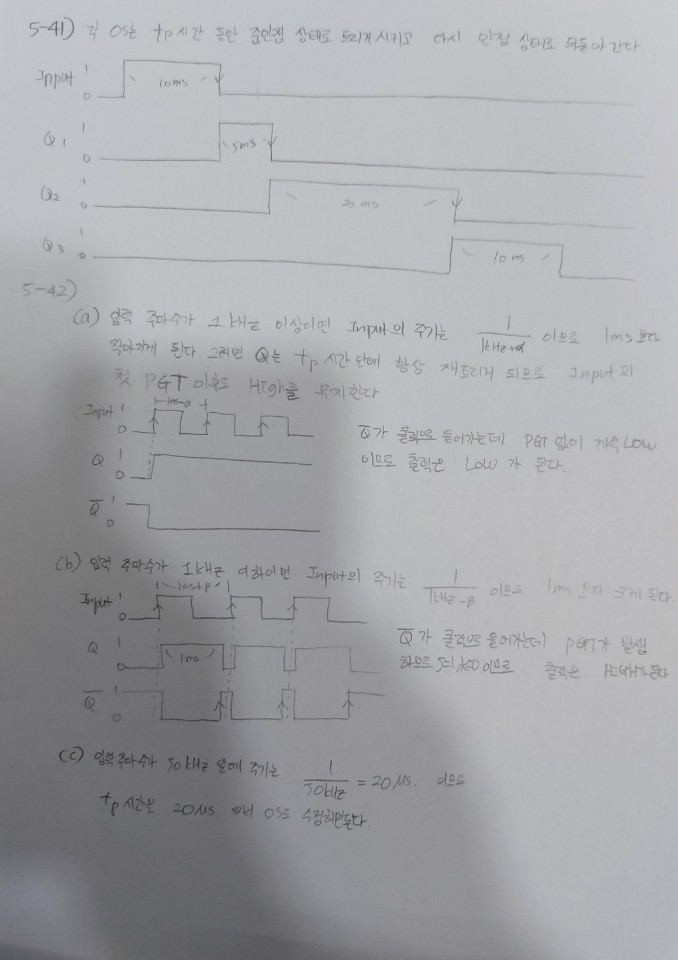 5-41) 각 OS는 tp 시간 동안 준안정 상태로 트리거 시키고 다시 안정 상태로 되돌아 간다.
Input 1 0 10ms
Q1 1 0 5ms
Q2 1 0 20 ms
Q3 1 0 10 ms
5-42)
(a) 입력 주파수가 1kHz 이상이면 Input의 주기는 1/1kHz+α 이므로 1ms 보다
작아지게 된다 그러면 Q는 tp 시간 안에 항상 재트리거 되므로 Input의
첫 PGT 이후로 High를 유지한다
Input 1 0 1ms-α
Q 1 0
Q̅ 1 0
Q̅가 클럭으로 들어가는데 PGT 없이 계속 LOW
이므로 출력은 LOW가 된다.
(b) 입력 주파수가 1kHz 이하이면 Input의 주기는 1/1kHz-β 이므로 1ms 보다 크게 된다.
Input 1 0 1ms+β
Q 1 0 1ms
Q̅ 1 0
Q̅가 클럭으로 들어가는데 PGT가 발생
하므로 J=1, K=0 이므로 출력은 HIGH가 된다
(c) 입력 주파수가 50kHz 일때 주기는 1/50kHz = 20μs. 이므로
tp 시간을 20μs OS로 수정하면된다.